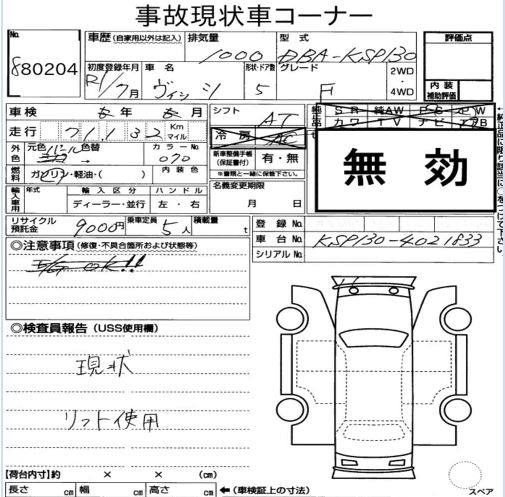 事故現状車コーナー
No.
880204
車歴 (自家用以外は記入)
排気量
1000
型式
DBA-KSP130
評価点
初度登録年月
R1/7月
車名
ヴィッツ
形状・ドア数
5
グレード
F
2WD
・
4WD
内装
補助評価
車検 年 月
シフト
AT
純正品
SR 純AW PS PW
カワ TV ナビ エアB
走行 71,132 Km マイル
冷房 AC
外色 元色 色替
カラーNo.
070
新車整備手帳
(保証書付)
有・無
無効
燃料 ガソリン・軽油・( )
内装色
※書類と一緒に保管下さい。
輸入車用 年式
輸入区分
ディーラー・並行
ハンドル
左・右
名義変更期限
月 日
リサイクル
預託金
9000円
乗車定員
5人
積載量
t
登録No.
車台No. KSP130-4021833
シリアルNo.
◎注意事項 (修復・不具合箇所および状態等)
◎検査員報告 (USS使用欄)
現状
リフト使用
【荷台内寸】約 × × (cm)
長さ cm 幅 cm 高さ cm
←(車検証上の寸法)
スペア